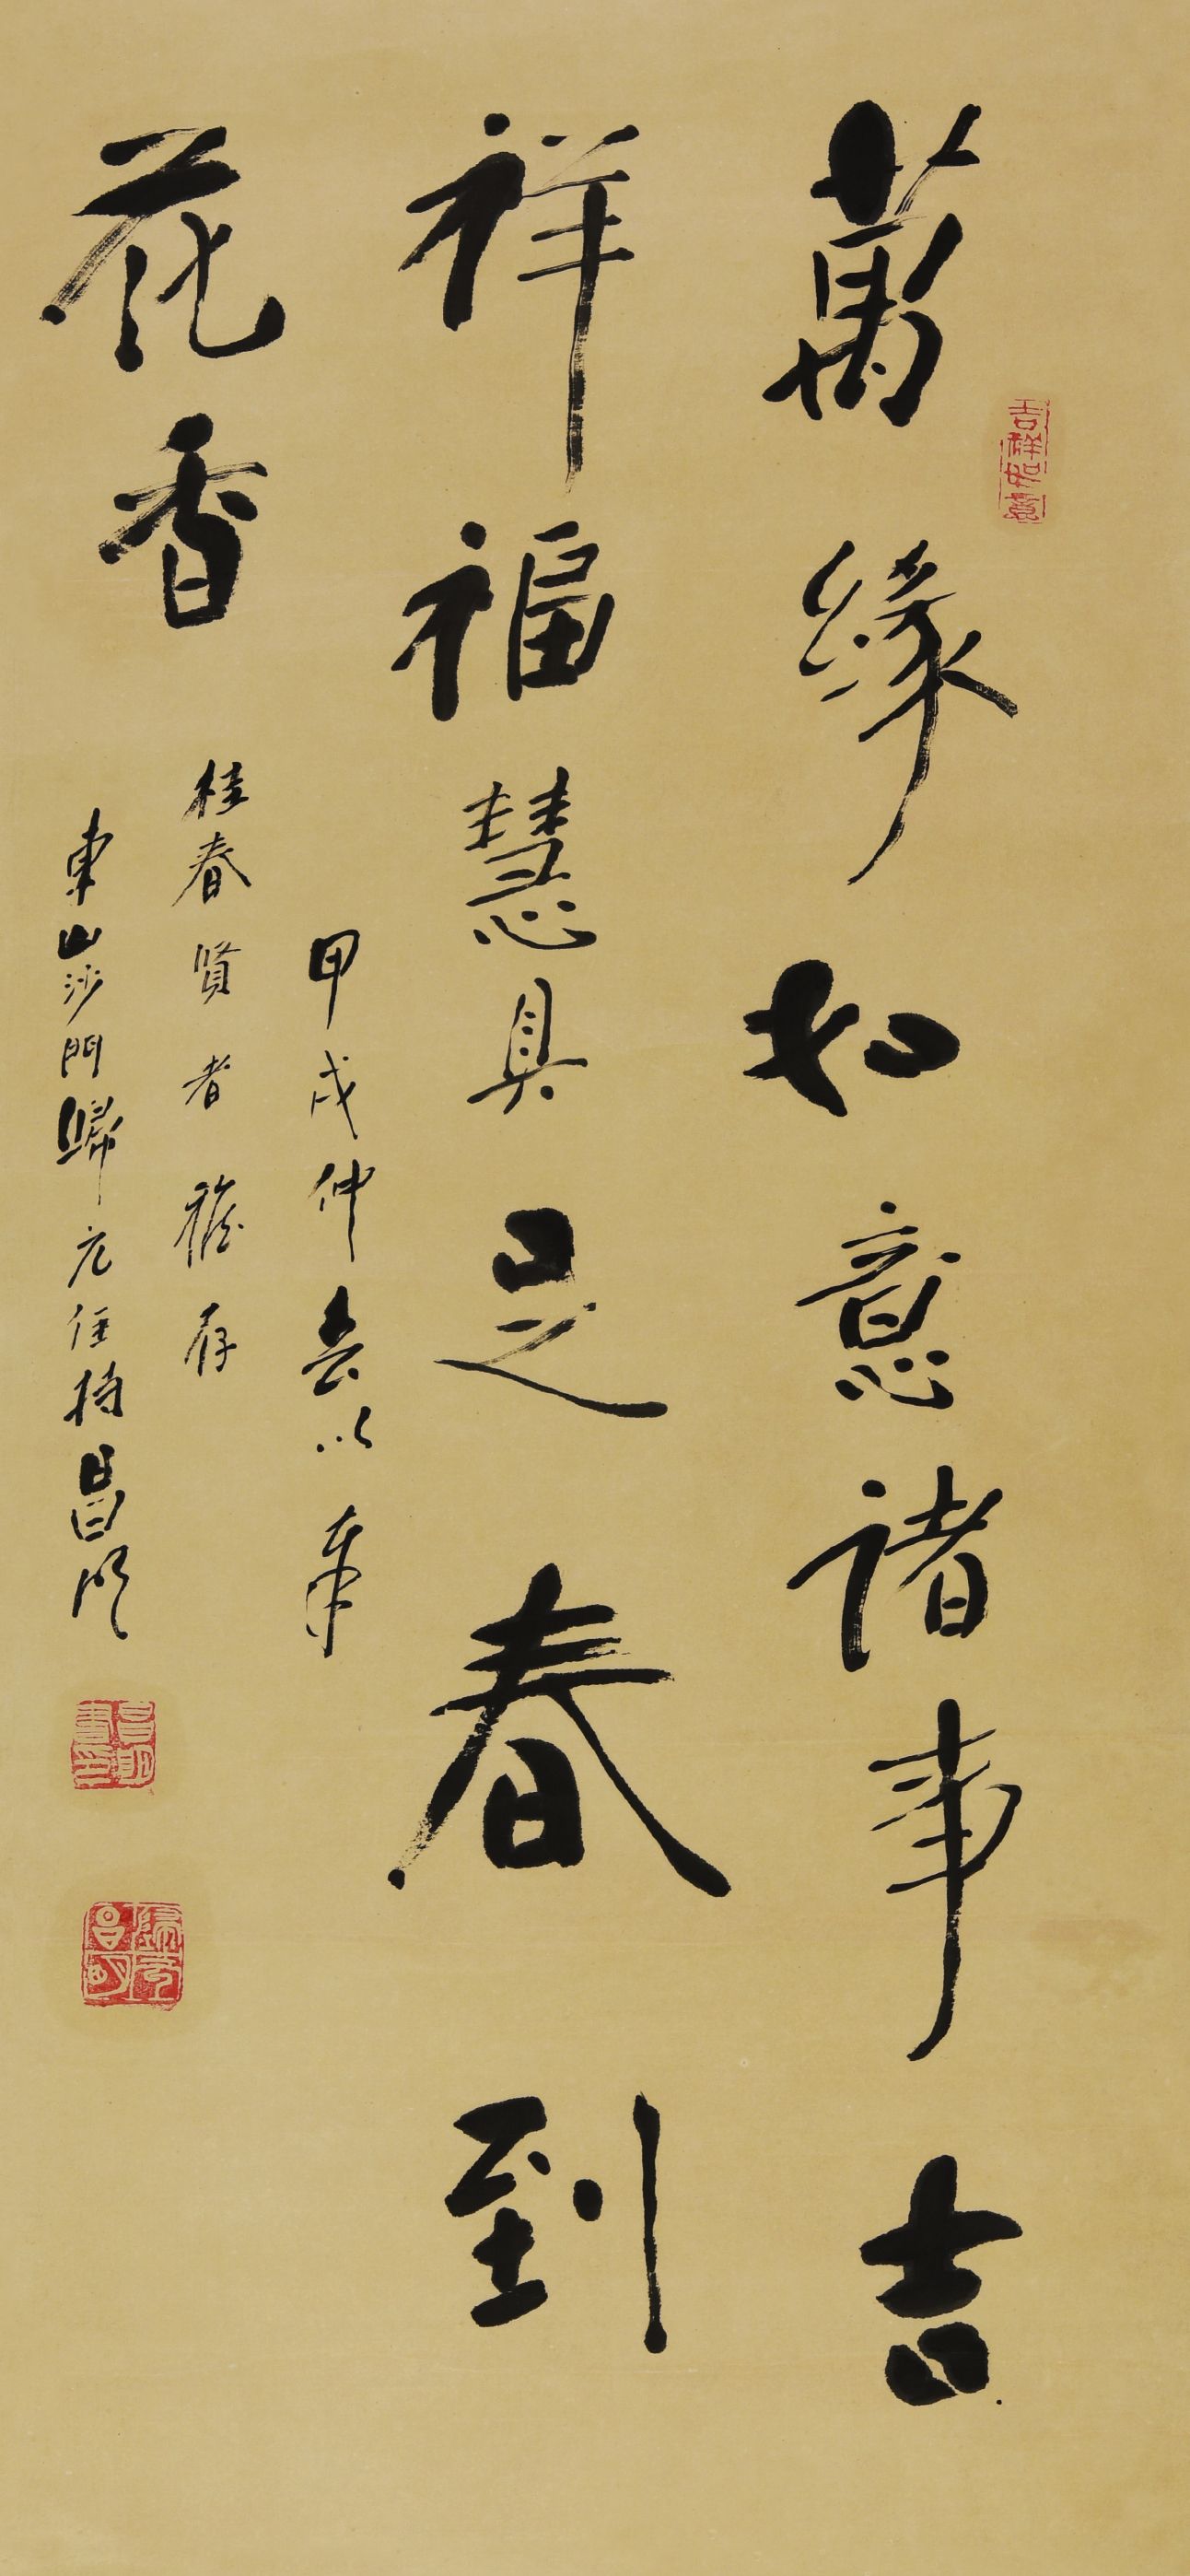 萬緣如意諸事吉
祥福慧具足春到
花香
甲戌仲春以奉
桂春賢者雅存
東山沙門歸元住持昌明
吉祥如意
昌明書印
歸元昌明